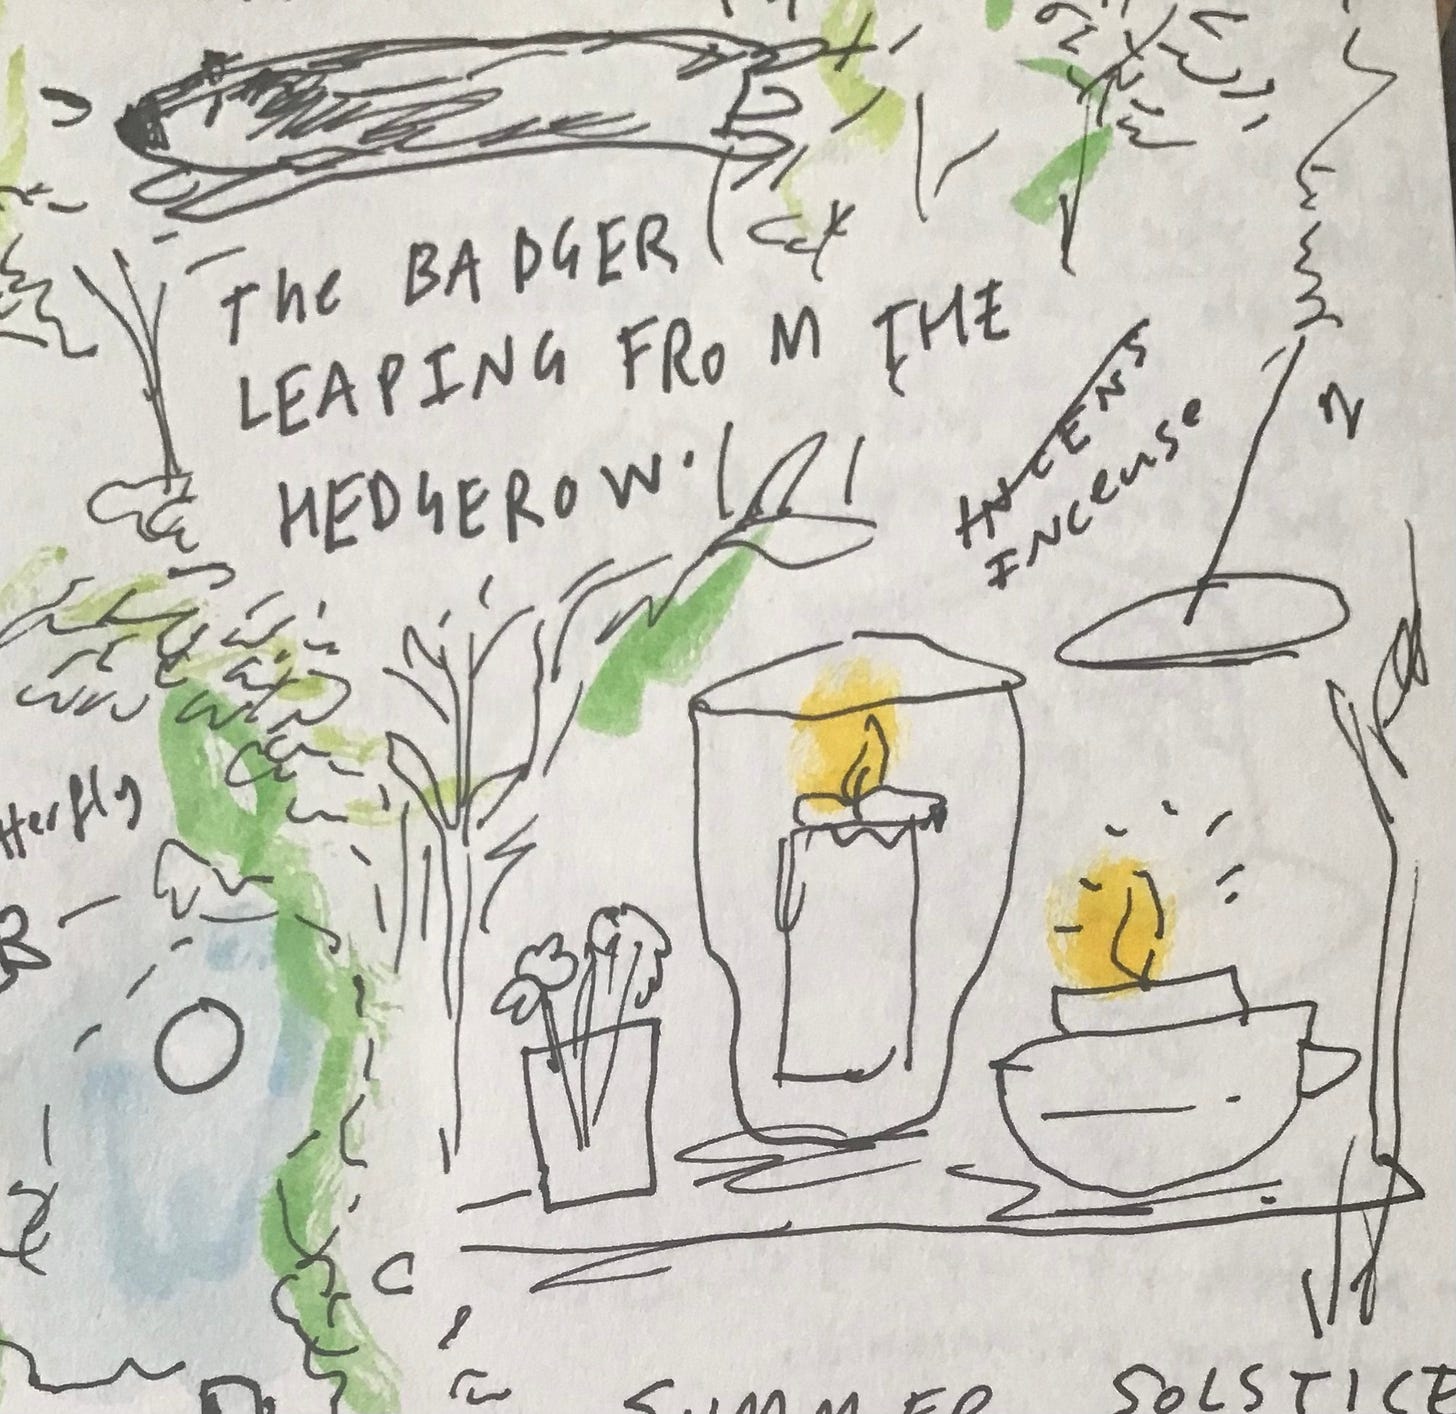 The BADGER
LEAPING FROM THE
HEDGEROW.
INCENS
INCeNse
tterfly
SUMMER SOLSTICE